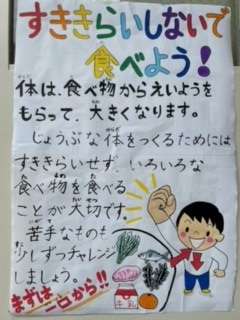 すききらいしないで
食べよう!
体は、食べ物からえいようを
もらって、大きくなります。
じょうぶな体をつくるためには
すききらいせず、いろいろな
食べ物を食べる
ことが大切です。
苦手なものも
少しずつチャレンジ
しましょう。
まずは一口から!!
牛乳